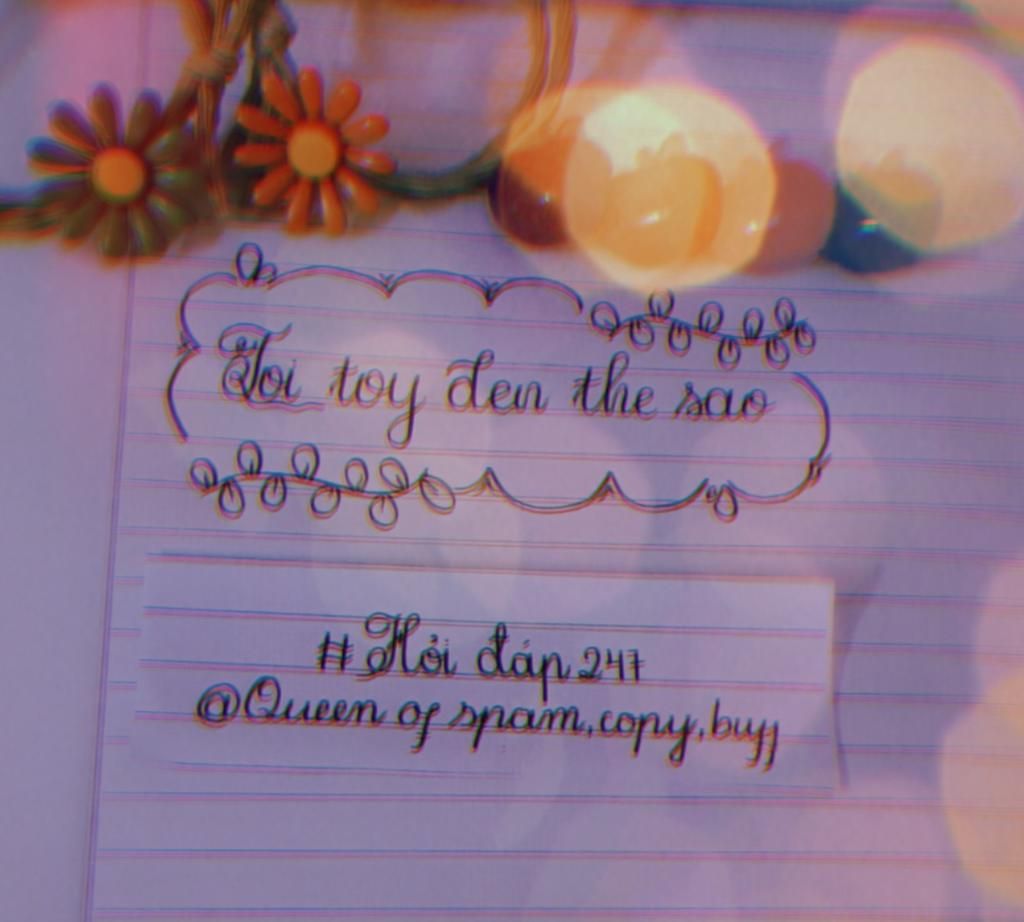 Toi toy den the sao
#Hỏi đáp 247
@Queen of spam,copy,buyj